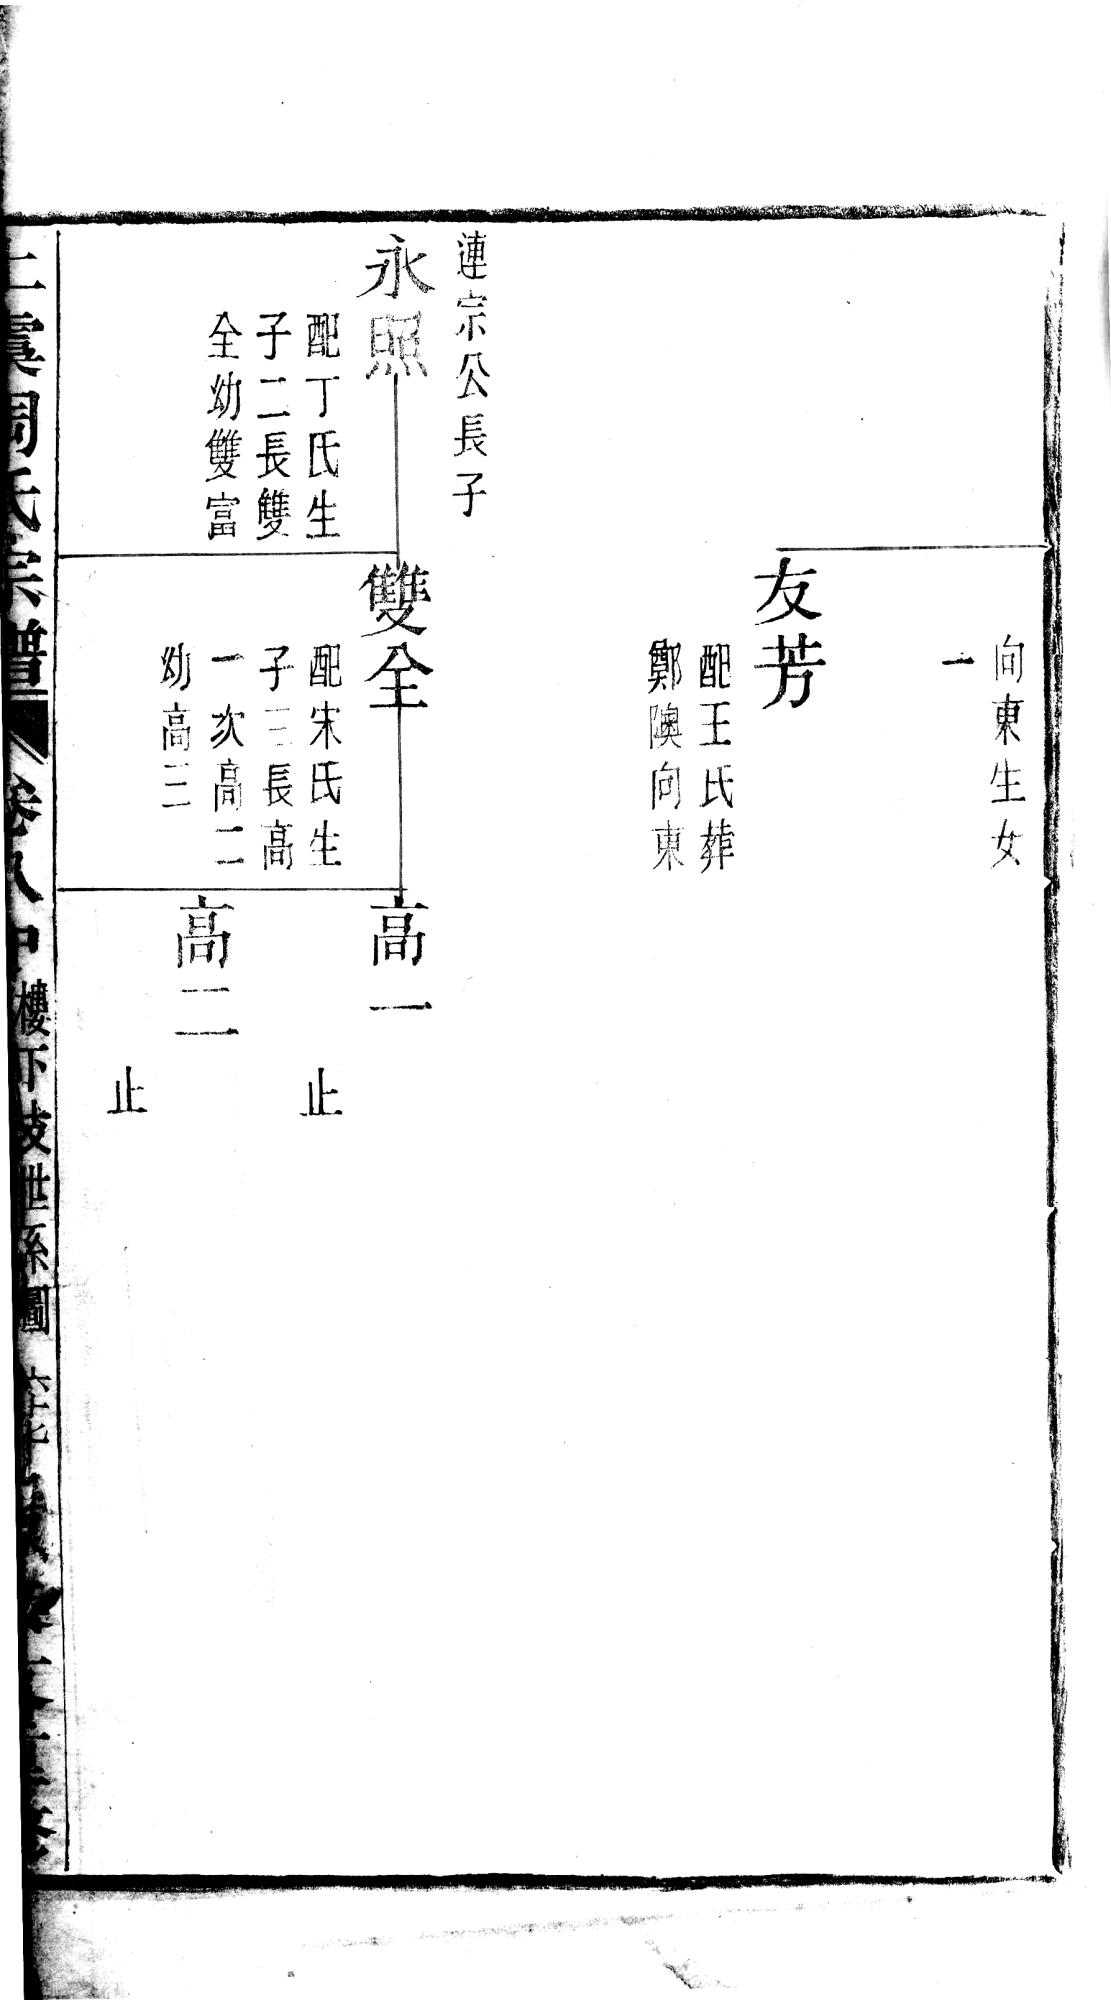 向東生女
一
友芳
配王氏葬
鄭隩向東
連宗公長子
永照
配丁氏生
子二長雙
全幼雙富
雙全
配宋氏生
子三長高
一次高二
幼高三
高一
止
高二
止
上虞周氏宗譜 卷八中 樓下支世系圖